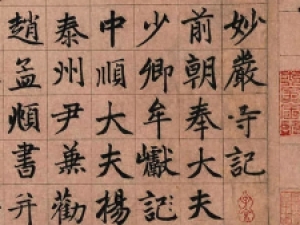 妙嚴寺記
前朝奉大夫
少卿牟巘記
中順大夫揚
泰州尹兼勸
趙孟頫書并